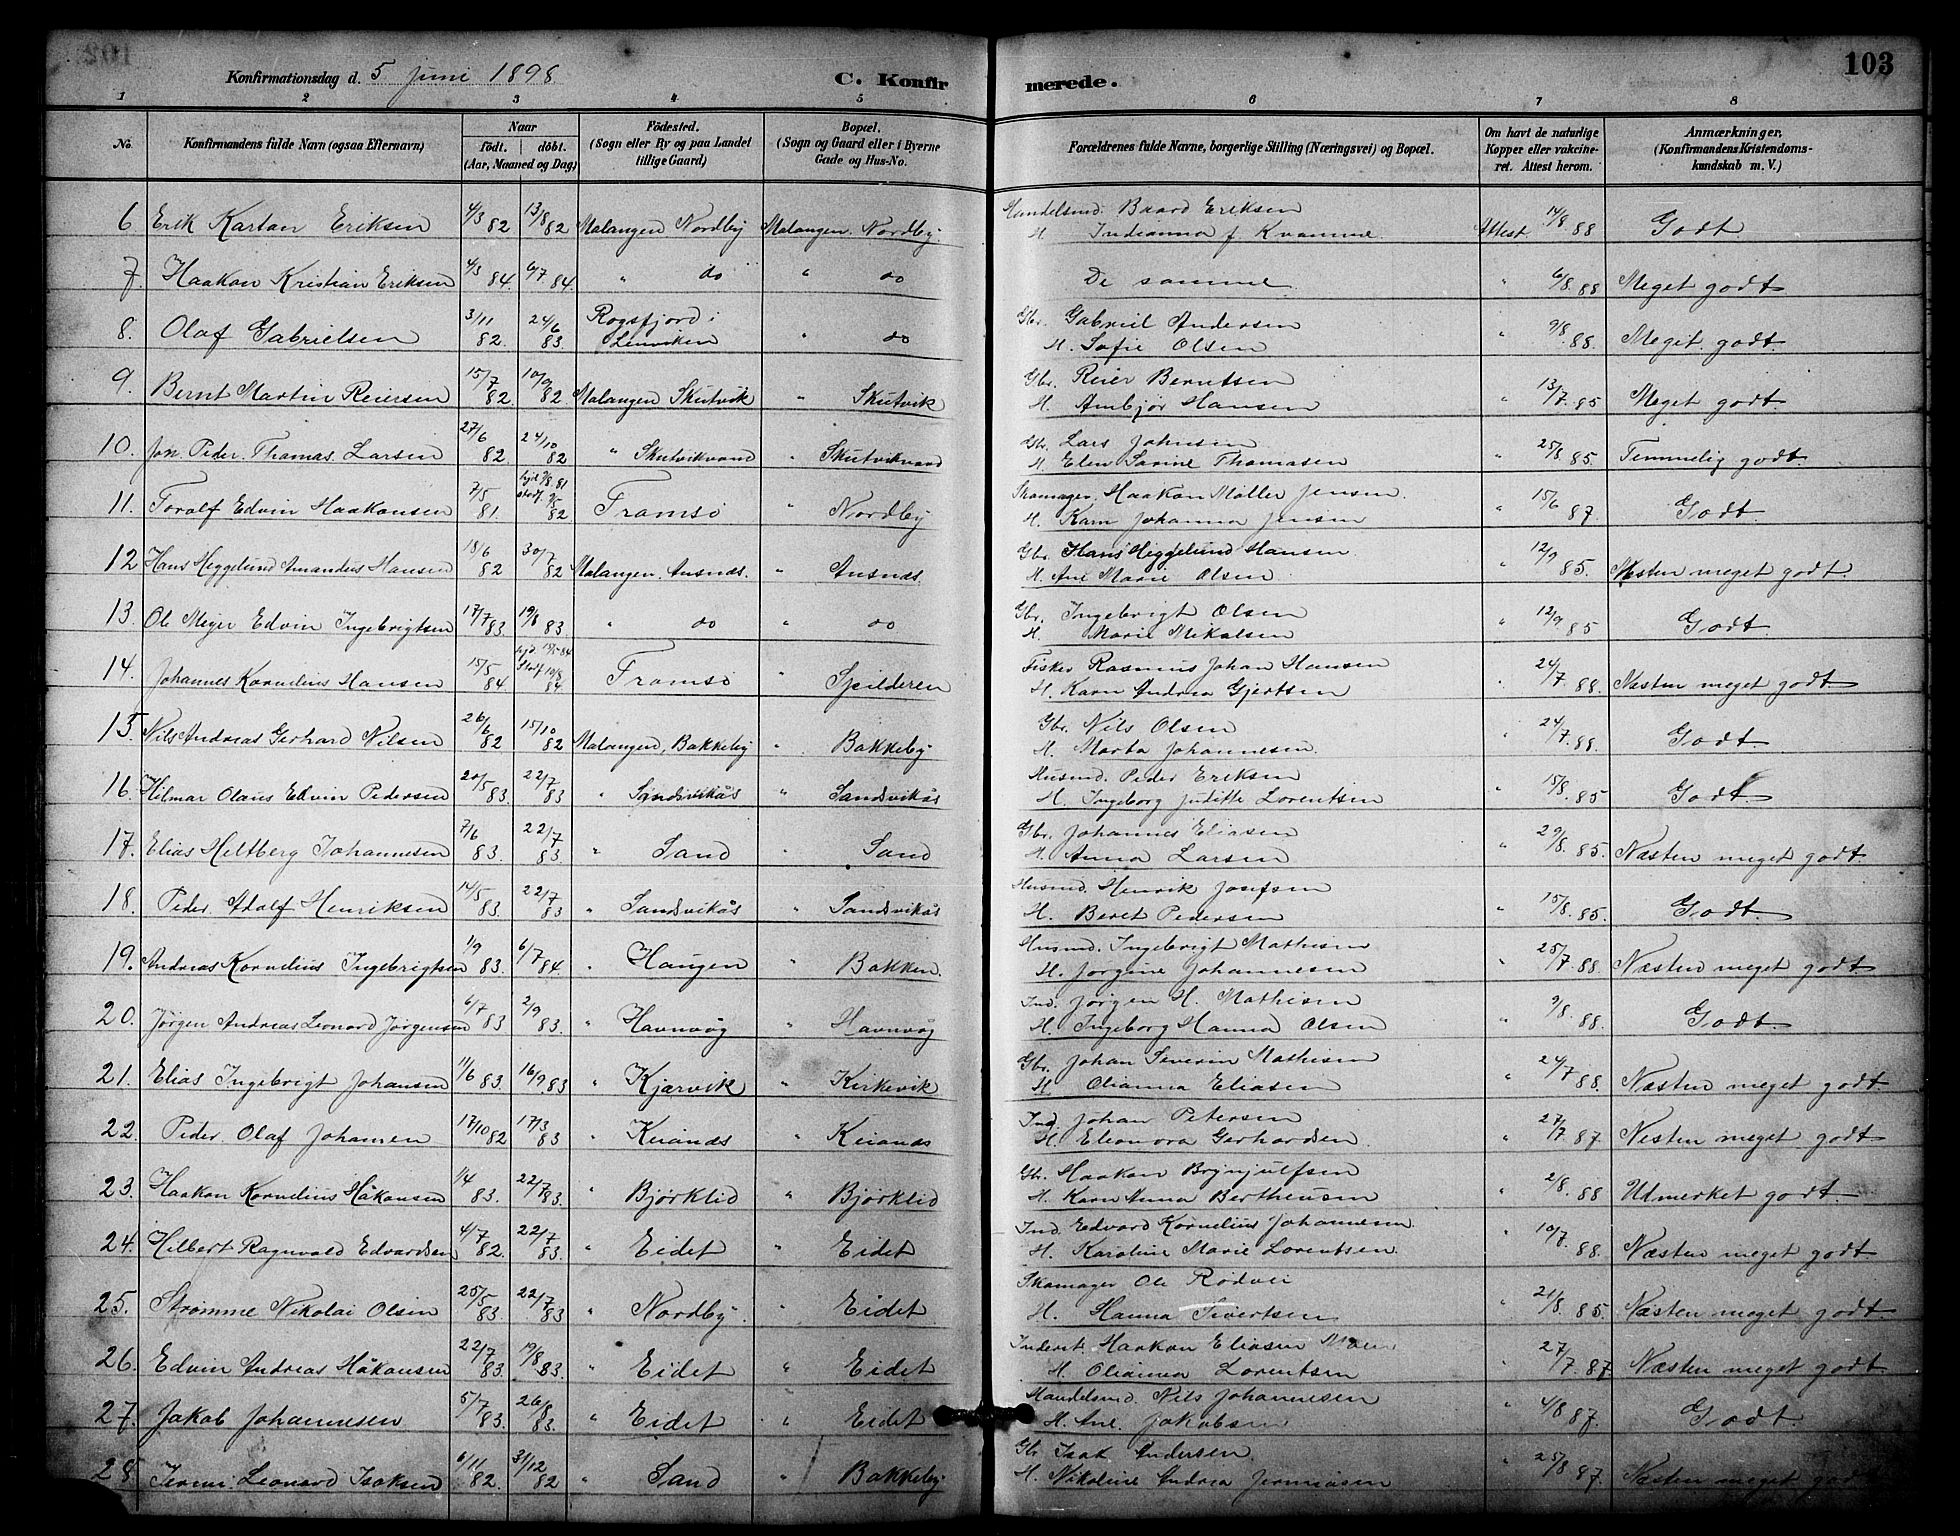 Konfirmationsdag d. 5 juni 1898 C. Konfirmerede. 103
1 2 3 4 5 6 7 8
No. Konfirmandens fulde Navn (ogsaa Efternavn) Naar födt. döbt. (Aar, Maaned og Dag) Födested. (Sogn eller By og paa Landet tillige Gaard) Bopæl. (Sogn og Gaard eller i Byerne Gade og Hus-No. Forældrenes fulde Navne, borgerlige Stilling (Næringsvei) og Bopæl. Om havt de naturlige Kopper eller vakcineret. Attest herom. Anmærkninger, (Konfirmandens Kristendomskundskab m. V.)
6 Erik Kartan Eriksen 4/3 82 13/8 82 Malangen Nordby Malangen Nordby. Handelsmd. Baard Eriksen Attest 14/8 88 Godt.
H. Indianna f. Kvamme
7. Haakon Kristian Eriksen 4/3 84. 6/7 84. " do " do De samme " 6/8 88 Meget godt
8. Olaf Gabrielsen 3/11 82. 24/6 83 Rogsfjord i Lenviken " do Gbr. Gabriel Andersen " 9/8 88. Meget godt
H. Sofie Olsen
9. Bernt Martin Reiersen 15/7 82 10/9 82 Malangen Skutvik " Skutvik Gbr. Reier Berntsen " 13/7 85 Meget godt
H. Ambjør Hansen
10. Jon Peder Thomas Larsen 27/6 82. 24/10 82 " Skutvikvand " Skutvikvand Gbr. Lars Johnsen " 25/8 85. Temmelig godt.
H. Elen Sarine Thomasen
11. Toralf Edvin Haakonsen 7/5 81 hjd 9/8 81 stadf. 9/5 82 Tromsø " Nordby Skomager. Haakon Møller Jensen. " 15/6 87. Godt.
H. Karn Johanna Jensen
12 Hans Heggelund Amandus Hansen 18/6 82 30/7 82 Malangen. Ansnæs. " Ansnæs. Gbr. Hans Heggelund Hansen. " 12/9 85. Næsten meget godt.
H. Ane Marie Olsen
13. Ole Meyer Edvin Ingebrigtsen 17/7 83. 19/8 83 " do " do Gbr. Ingebrigt Olsen " 12/9 85 Godt.
H. Marie Mikalsen
14. Johannes Kornelius Hansen 15/5 84 hjd. 19/5 84 Stadf 10/8 84 Tromsø " Spilderen Fisker Rasmus Johan Hansen " 24/7 88. Næsten meget godt.
H. Karn Andrea Gjertsen
15. Nils Andreas Gerhard Nilsen 26/6 82 15/10 82 Malangen, Bakkeby " Bakkeby Gbr. Nils Olsen " 24/7 88. Godt.
H. Marta Johannesen
16. Hilmar Olaus Edvin Pedersen 20/5 83. 22/7 83 " Sandsvikås " Sandsvikås Husmd. Peder Eriksen " 15/8 85 Godt.
H. Ingeborg Juditte Lorentsen
17. Elias Heltberg Johannesen 7/6 83. 22/7 83. " Sand " Sand Gbr. Johannes Eliasen " 29/8 85. Næsten meget godt
H. Anna Larsen
18. Peder Adolf Henriksen 14/5 83. 22/7 83 " Sandsvikås " Sandsvikås Husmd. Henrik Josefsen " 15/8 85. Godt.
H. Beret Pedersen
19. Andreas Kornelius Ingebrigtsen 1/9 83. 6/7 84 " Haugen " Bakken. Husmd. Ingebrigt Mathisen " 25/7 88. Næsten meget godt.
H. Jørgine Johannesen
20. Jørgen Andreas Leonard Jørgensen 6/7 83 2/9 83. " Havnvåg " Havnvåg Ind. Jørgen H. Mathisen " 9/8 88. Godt.
H. Ingeborg Hanna Olsen
21. Elias Ingebrigt Johansen 11/6 83. 16/9 83 " Kjærvik " Kirkevik Gbr. Johan Severin Mathisen " 24/7 88. Næsten meget godt.
H. Olianna Eliasen
22. Peder Olaf Johansen 17/10 82 17/3 83. " Keianæs " Keianæs Ind. Johan Petersen " 27/7 87. Næsten meget godt
H. Eleonora Gerhardsen
23. Haakon Kornelius Håkonsen 1/4 83. 22/7 83. " Bjørklid " Bjørklid Gbr. Haakon Brynjulfsen " 2/8 88 Udmerket godt.
H. Karn Anna Bertheusen
24. Hilbert Ragnvald Edvardsen 4/7 82. 22/7 83. " Eidet " Eidet Ind Edvard Kornelius Johannesen " 10/7 88. Næsten meget godt.
H. Karoline Marie Lorentsen
25. Strømme Nikolai Olsen 25/5 83. 22/7 83 " Nordby. " Eidet Skomager Ole Rødvei " 21/8 85 Næsten meget godt.
H. Hanna Sivertsen
26. Edvin Andreas Håkonsen 22/7 83. 19/8 83. " Eidet " Eidet Inderst. Haakon Eliasen Moen " 27/7 87 Næsten meget godt.
H. Olianna Lorentsen
27. Jakob Johannesen 5/7 83. 26/8 83. " Eidet " Eidet Handelsmd. Nils Johannesen " 4/8 87. Godt.
H. Ane Jakobsen
28. Jeremi. Leonard Isaksen 6/11 82. 31/12 82 " Sand " Bakkeby Gbr Isak Andersen " 25/8 87. Næsten meget godt
H. Nikoline Andrea Jermiasen